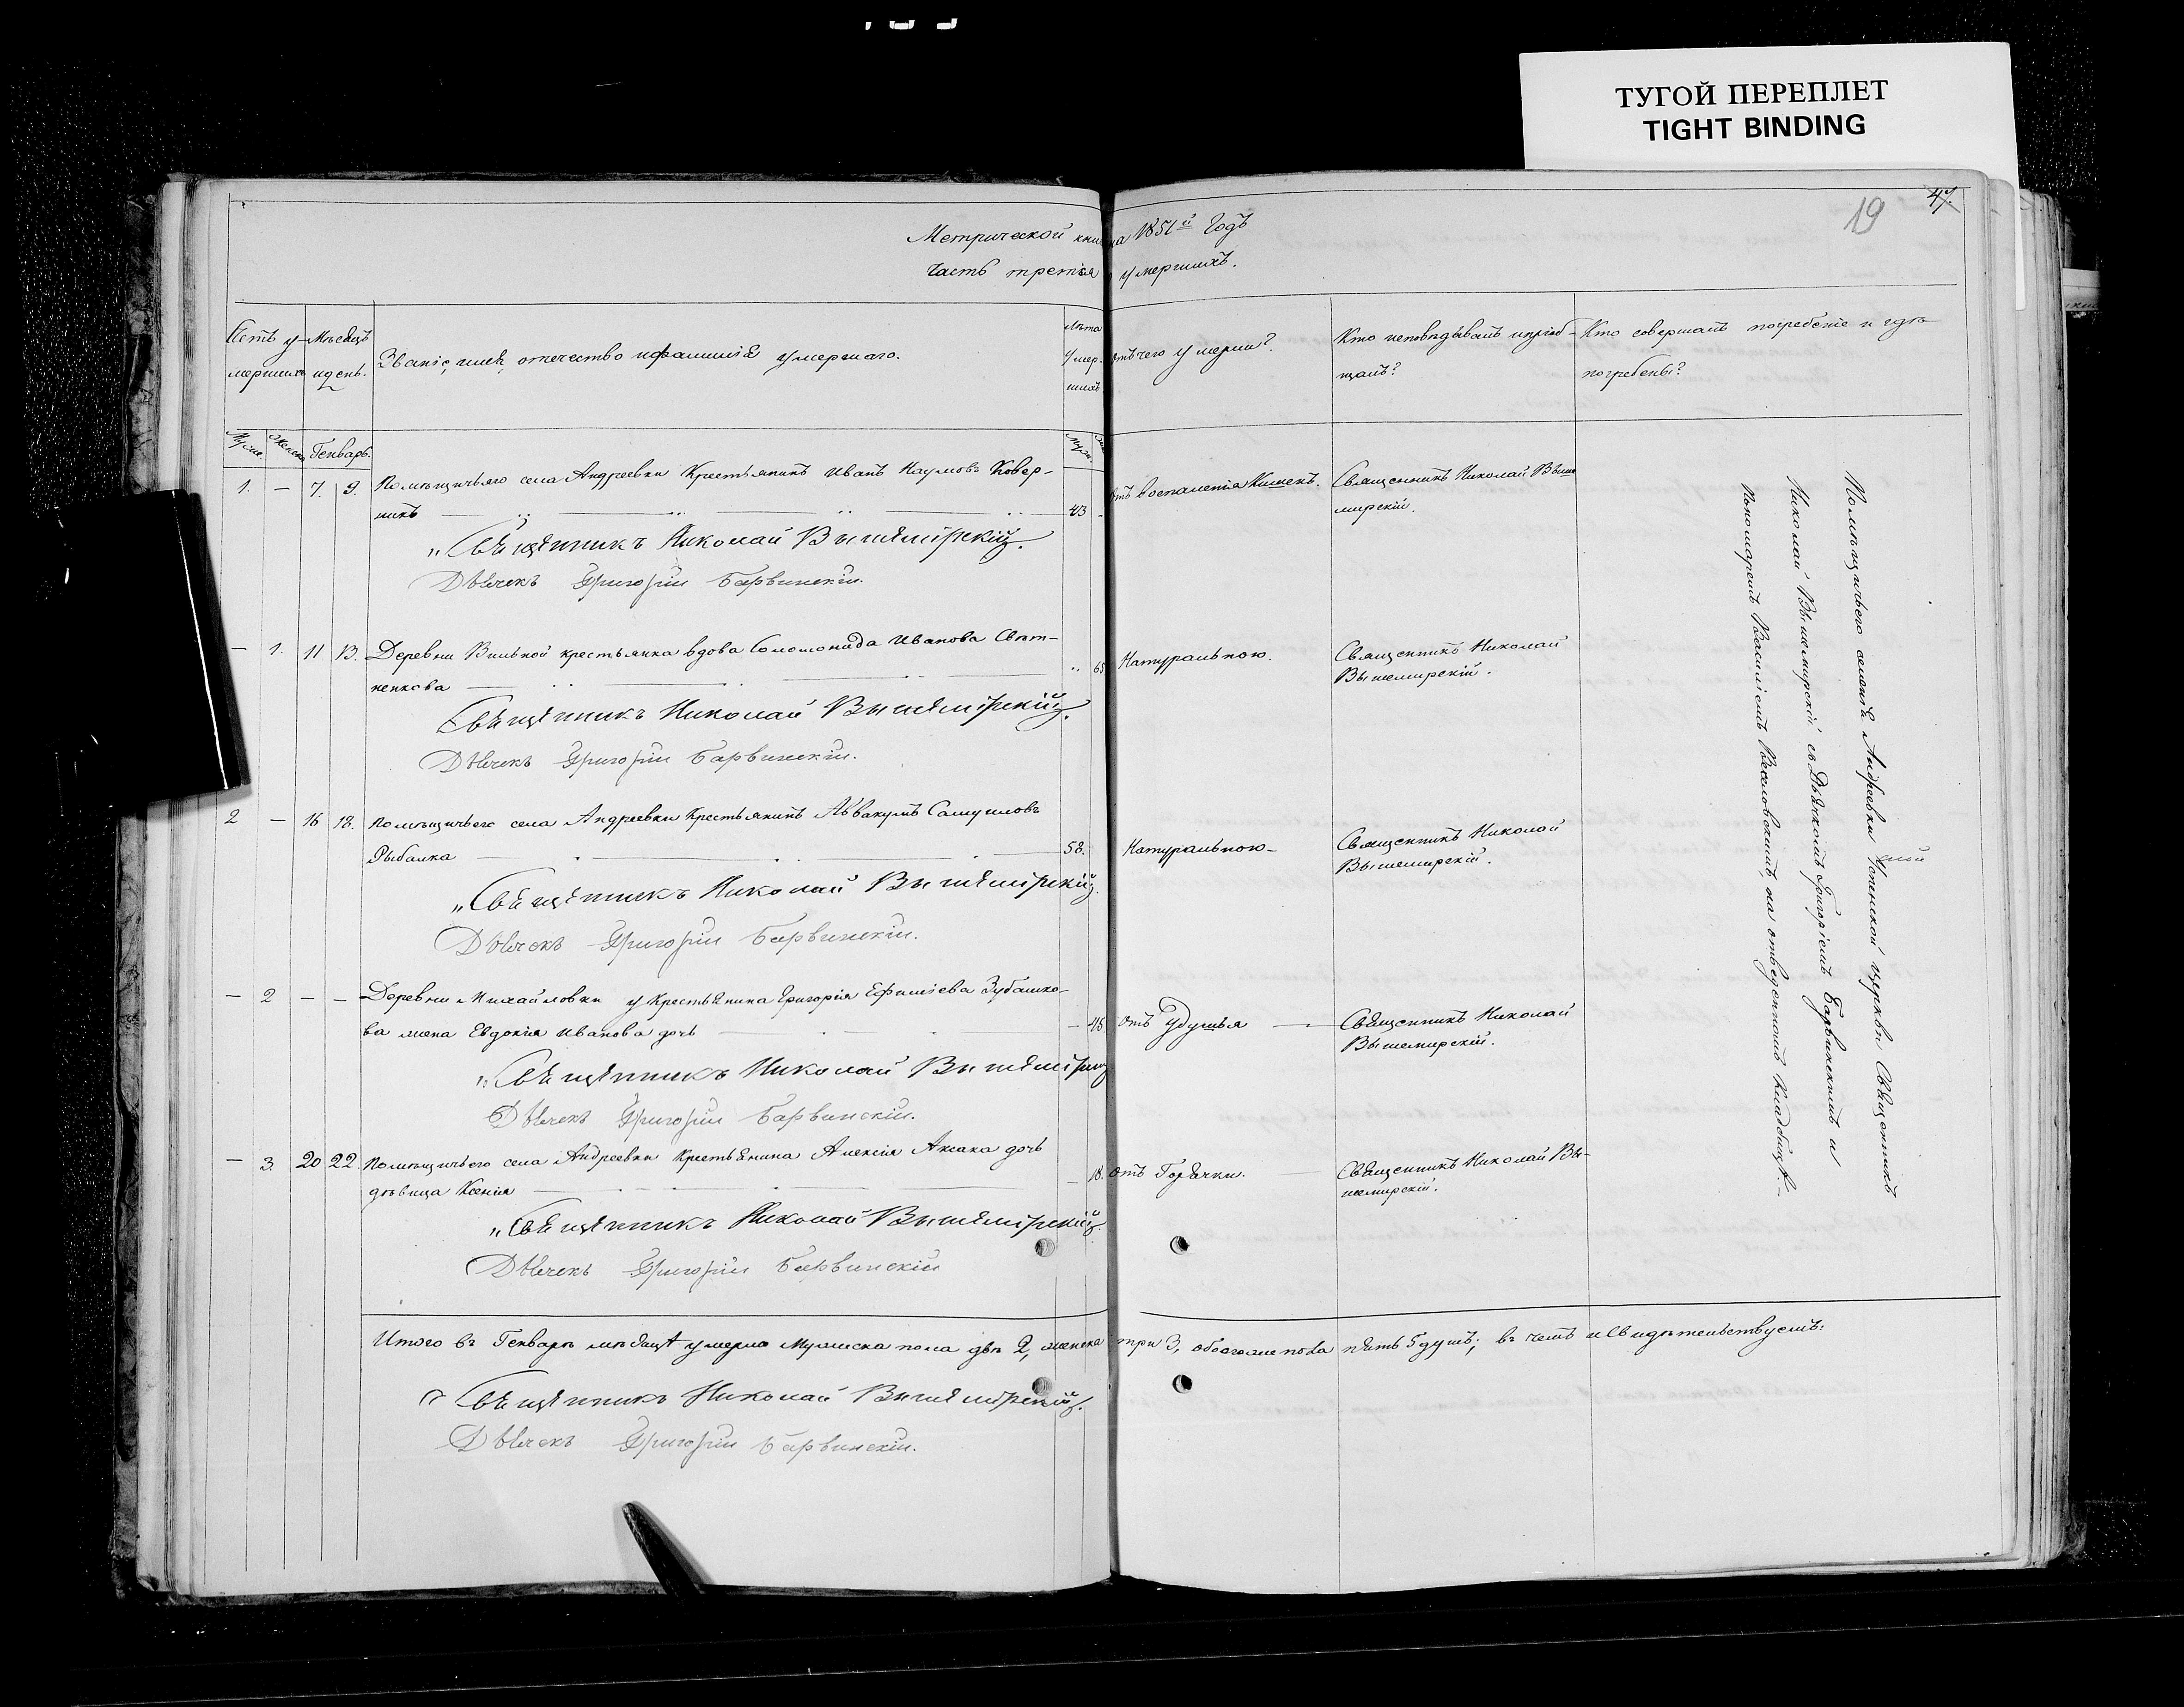 ТУГОЙ ПЕРЕПЛЕТ
TIGHT BINDING
19
47.
Метрической кни на 1851й Годъ
Часть третія умершихъ.
Счетъ у-
мершихъ
Мѣсяцъ
и день.
Званіе, имя, отчество и фамилія умершаго.
Лѣта
умер-
шихъ
отъ чего умерли?
Кто исповѣдывалъ и пріоб-
щалъ?
Кто совершалъ погребеніе и гдѣ
погребены?
Муже. Женска Генварь. Муж.
1. — 7. 9. Помѣщичьяго села Андреевки Крестьянинъ Иванъ Наумовъ Ковер-
никъ 43 отъ воспаленія Кишекъ. Священникъ Николай Выше
мирскій.
Священникъ Николай Вышемірскій.
Дьячекъ Григорій Барвинскій.
— 1. 11 13. Деревни Вильной крестьянка вдова Соломонида Иванова Свѣт-
ненкова 65 Натуральною. Священникъ Николай
Вышемирскій.
Священникъ Николай Вышемірскій.
Дьячекъ Григорій Барвинскій.
2 — 16 18. Помѣщичьего села Андреевки Крестьянинъ Аввакумъ Самуиловъ
Рыбалка 58. Натуральною — Священникъ Николай
Вышемирскій.
Священникъ Николай Вышемірскій.
Дьячекъ Григорій Барвинскій.
— 2 — — Деревни Михайловки у Крестьянина Григорія Ефиміева Зубашко-
ва жена Евдокія Иванова дочь — 46 отъ Удушья — Священникъ Николай
Вышемирскій.
Священникъ Николай Вышемір
Дьячекъ Григорій Барвинскій.
— 3. 20 22 Помѣщичьего села Андреевки Крестьянина Алексія Аксака дочь
дѣвица Ксенія — 18. отъ Горячки. Священникъ Николай Вы-
шемирскій.
Священникъ Николай Вышемірскій.
Дьячекъ Григорій Барвинскій
Помѣщичьего селенія Андреевки Успенской церкви Священникъ
Николай Вышемирскій съ Дьячкомъ Григоріемъ Барвинскимъ и
Пономаремъ Василіемъ Веселовскимъ, на отведенномъ Кладбищѣ. —
Итого въ Генварѣ мѣсяцѣ умерло Мужеска пола два 2, женска три 3, обоего же пола пять 5 душъ; въ чемъ и свидѣтельствуемъ:
Священникъ Николай Вышемірскій.
Дьячекъ Григорій Барвинскій.